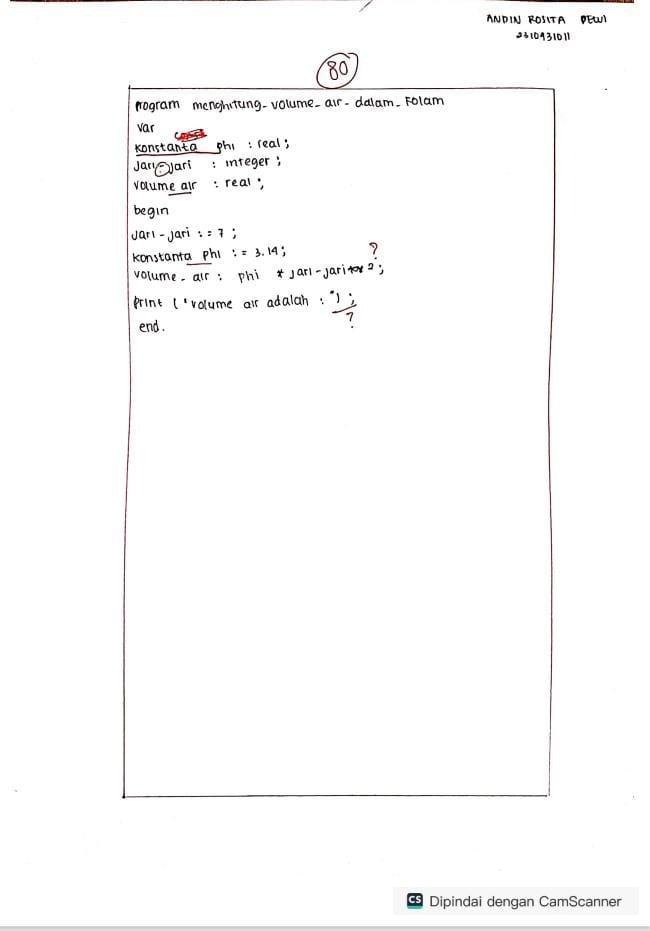 ANDIN ROSITA DEWI
2310431011
80
Program menghitung-volume-air-dalam-Folam
var
Konstanta phi : real;
Jari-jari : integer;
volume air : real;
begin
Jari-jari := 7;
konstanta phi := 3.14;
?
volume-air : phi * jari-jari 2;
Print ('volume air adalah : ");
?
end.
CS Dipindai dengan CamScanner